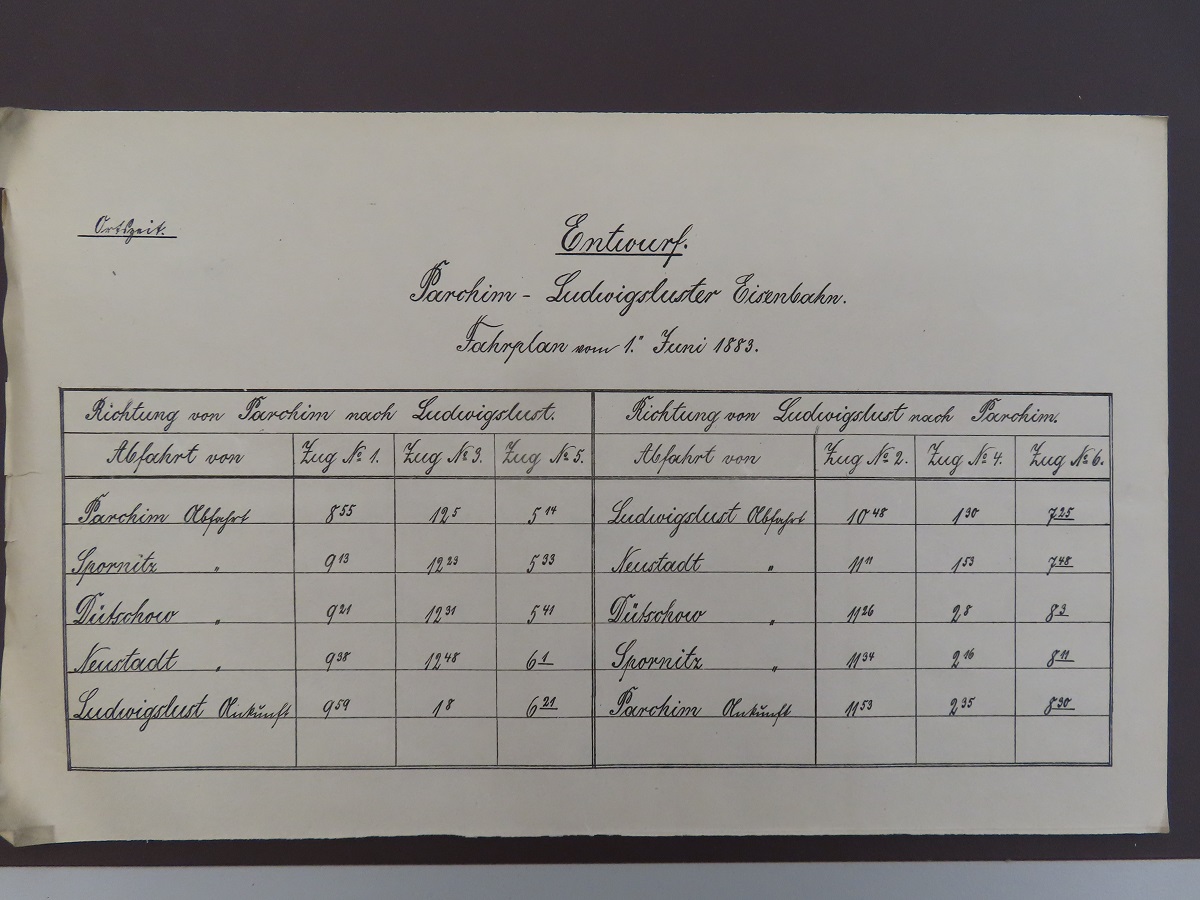 Ortszeit.
Entwurf.
Parchim - Ludwigsluster Eisenbahn.
Fahrplan vom 1. Juni 1883.
Richtung von Parchim nach Ludwigslust. Richtung von Ludwigslust nach Parchim.
Abfahrt von Zug No 1. Zug No 3. Zug No 5. Abfahrt von Zug No 2. Zug No 4. Zug No 6.
Parchim Abfahrt 8 55 12 5 5 14 Ludwigslust Abfahrt 10 48 1 30 7 25
Spornitz " 9 13 12 23 5 33 Neustadt " 11 11 1 53 7 48
Dütschow " 9 21 12 31 5 41 Dütschow " 11 26 2 8 8 3
Neustadt " 9 38 12 48 6 1 Spornitz " 11 34 2 16 8 11
Ludwigslust Ankunft 9 59 1 8 6 21 Parchim Ankunft 11 53 2 35 8 30